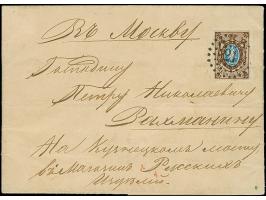 Въ Москву
Господину
Петру Николаевичу
Рахманину
На Кузнецкомъ мосту
въ Магазинъ Русскихъ
Изделiй.